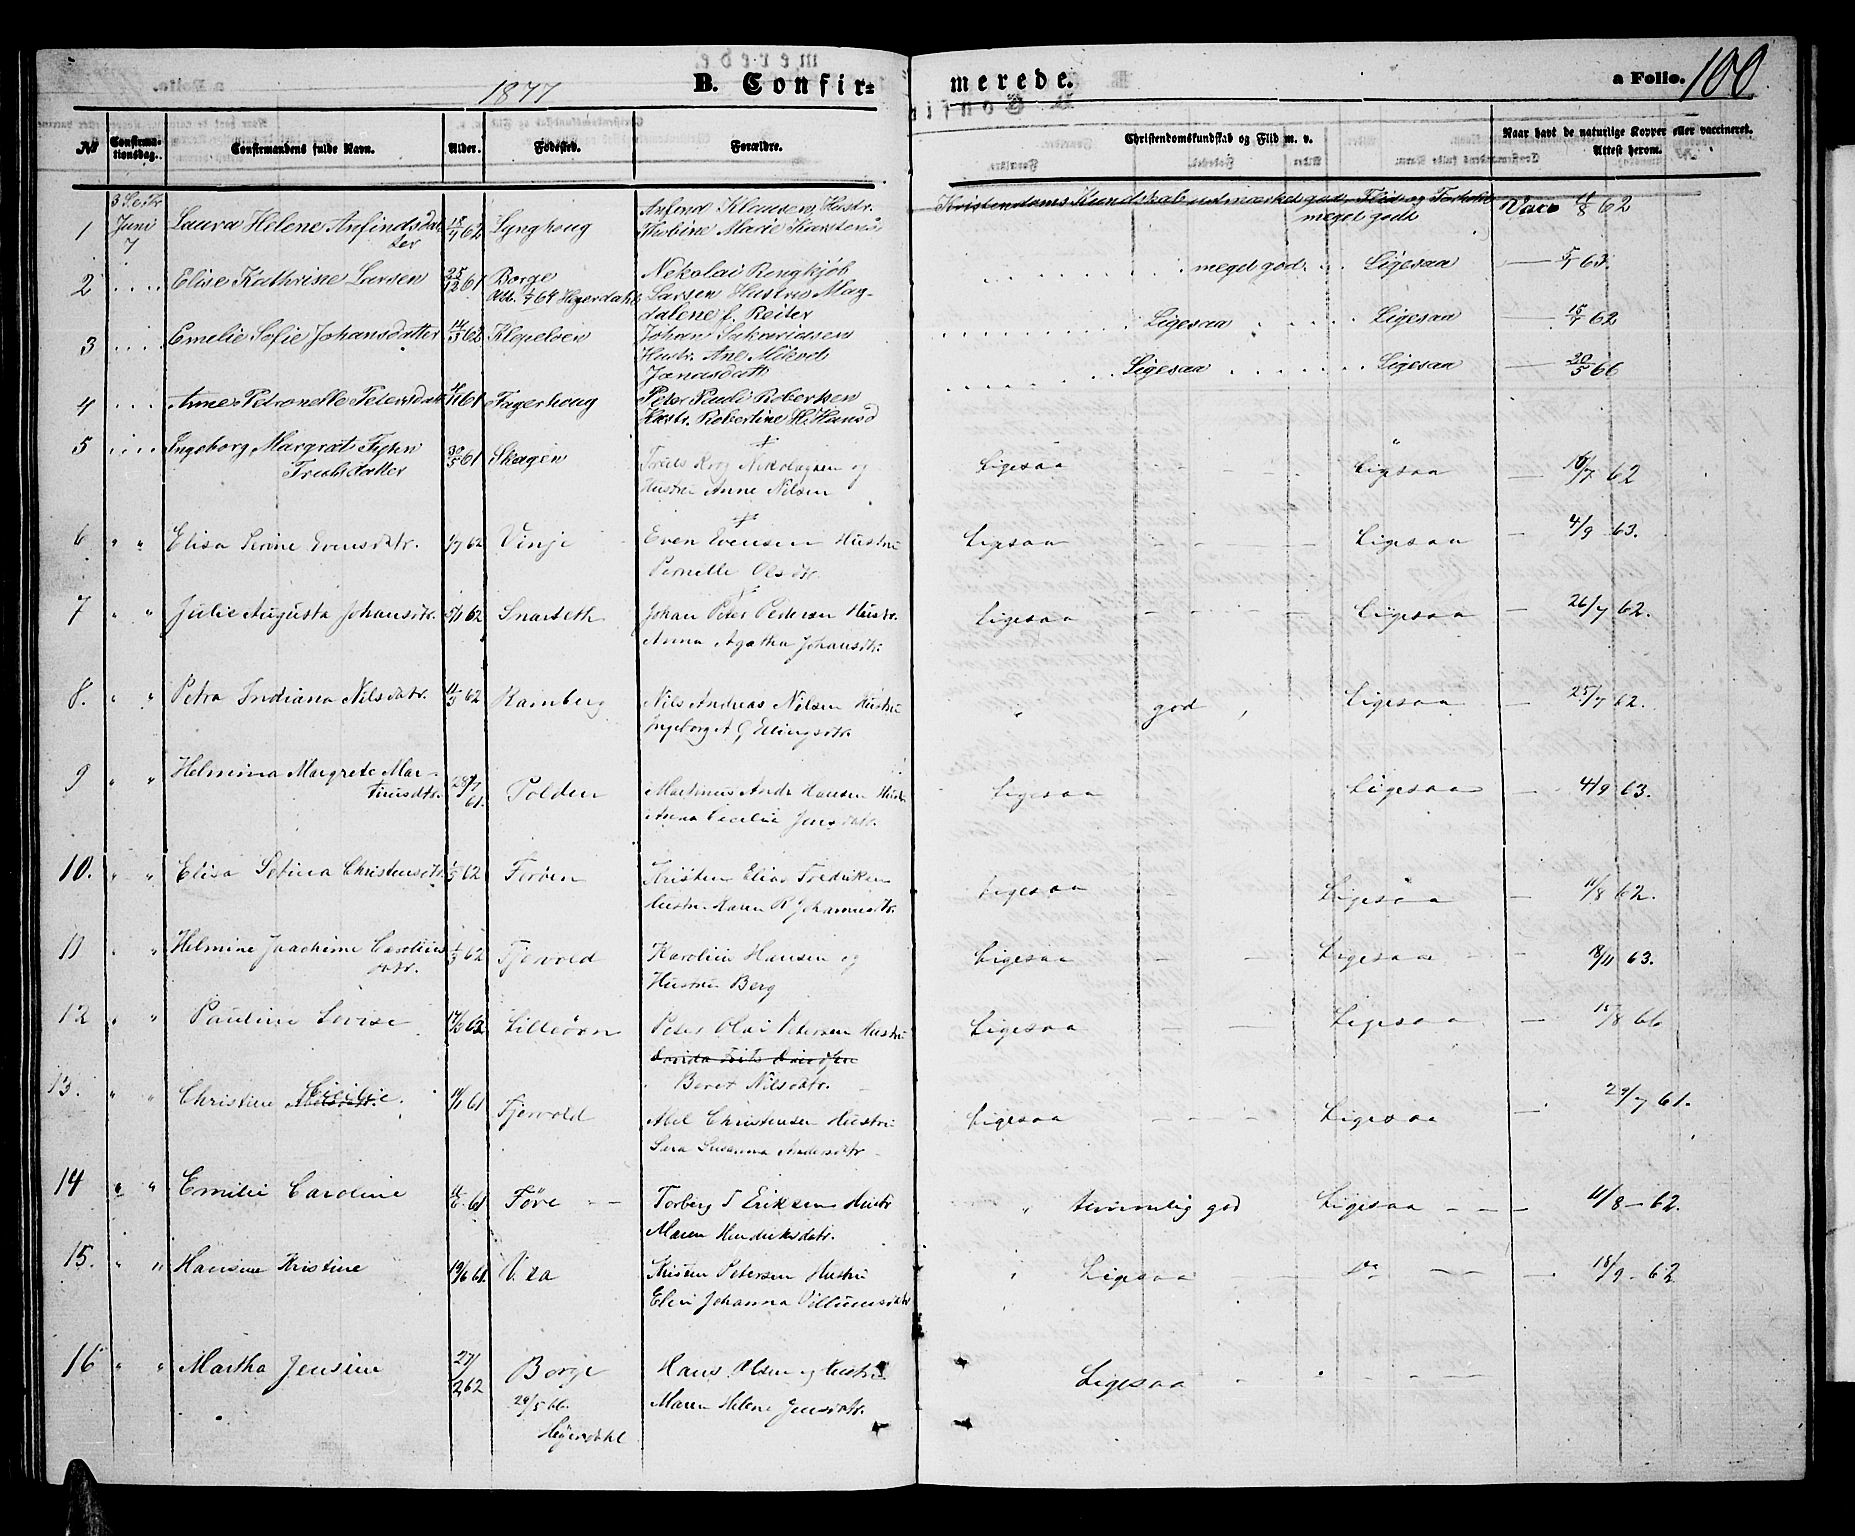 1877 B. Confir= merede. a Folio. 100
No Confirmationsdag. Confirmandens fulde Navn. Alder. Fødested. Forældre. Christendomskundskab og Flid m. v. Naar havt de naturlige Kopper eller vaccineret. Attest herom.
3 S. e. Tr.
1 Juni 7 Laura Helene Arfindsdatter 62 Lynghoug Arfind Klausen, Hustr. Marie Karstensd Kristendoms Kundskab udmærket god, Flid og Forhold meget godt Vacc 11/8 62
2 .... Elise Kathrine Larsen 25/12 61 Borge Att. 1/7 64 Hegerdahl Nikolai Rengkjøb Larsen Hustru Magdalene f. Reiter meget god Ligesaa 5/1 63
3 .... Emelie Sofie Johansdatter 14/5 62 Klepelsen Johan Sakariasen Hustr. Ane Jonasdatt Ligesaa Ligesaa 15/7 62
4 .... Anne Petronelle Petersdatt 61 Fagerhoug Peter Pauli Robertsen Hustr. Robertine H. Hansd Ligesaa Ligesaa 20/5 66
5 .... Ingeborg Margrat Truelsdatter 30/5 61 Skagen + Truls Korg Nikolaysen og Hustru Anne Nilsen Ligesaa Ligesaa 16/7 62
6 " " Elisa Perine Evensdatr. 1/7 62 Vinje + Even Evensen Hustru Pernelle Olsdtr. Ligesaa Ligesaa 4/9 63.
7 " " Julie Augusta Johansdtr. 5/1 62 Snarseth + Johan Peter Pedersen Hustr. Anna Agatha Johansdtr. Ligesaa Ligesaa 26/7 62.
8. " " Petra Indiana Nilsdatr. 11/3 62 Ramberg Nils Andreas Nilsen Hustru Ingeborg A G Ellingsdtr. " god, Ligesaa 25/7 62.
9 " " Helmina Margrete Martinusdtr. 28/7 61. Polden Martinus Andr Hansen Hustr Anna Cecilie Jensdatr. Ligesaa Ligesaa 4/9 63.
10. " " Elisa Petina Christensdtr. 1/5 62 Forøen Kristen Elias Fredriksen Hustru Maren R Johannesdtr. Ligesaa Ligesaa 11/8 62.
11 " " Helmine Joachime Carolinesdtr. 1/3 62 Fjervold Karolius Hansen og Hustru Berg Ligesaa Ligesaa 18/11 63.
12 " " Pauline Lovise 62 Lilleøvn Peter Olai Petersen Hustru Beret Nilsdtr. Ligesaa Ligesaa 15/8 66
13. " " Christine Cicilie. 11/11 61 Fjervold Abel Christensen Hustru Sara Susanna Andersdtr. Ligesaa Ligesaa 29/7 61.
14 " " Emilie Caroline 61 Føre Torberg T Eriksen Hustr Maren Hendriksdatr. " temmelig god Ligesaa 11/8 - 62.
15. " " Hansine Kristine 19/6 61. Vea Kristen Petersen Hustru Elen Johanna Villumsdatr " Ligesaa Do 18/9 - 62
16 " " Martha Jensine 27/2 62 Borge 29/5 66. Hegerdahl Hans Olsen og Hustru Maren Helene Jensdtr. Ligesaa